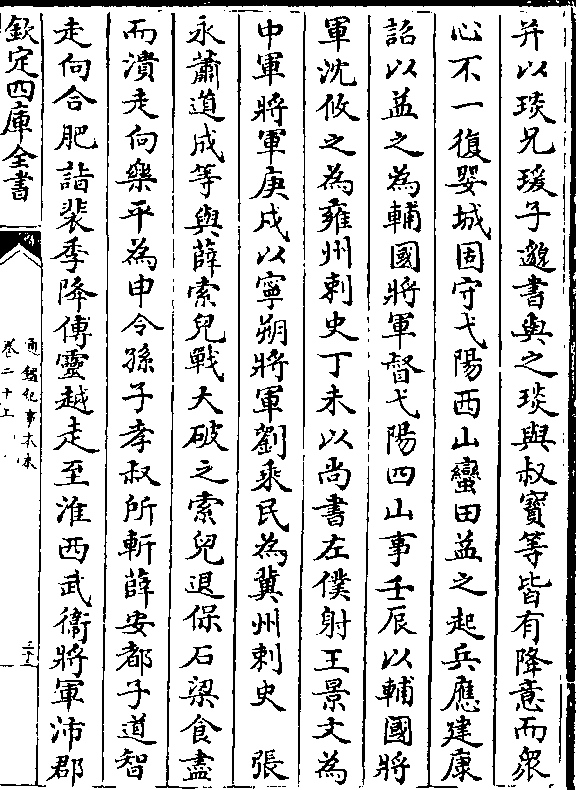 并以琰兄瑗子邈書與之琰與叔寶等皆有降意而衆
心不一復嬰城固守弋陽西山蠻田益之起兵應建康
詔以益之為輔國將軍督弋陽四山事壬辰以輔國將
軍沈攸之為雍州刺史丁未以尚書左僕射王景文為
中軍將軍庚戌以寧朔將軍劉乘民為冀州刺史　張
永蕭道成等與薛索兒戰大破之索兒退保石梁食盡
而潰走向樂平為申令孫子孝叔所斬薛安都子道智
走向合肥詣裴季降傅靈越走至淮西武衛將軍沛郡
欽定四庫全書
通鑑紀事本末
卷二十上